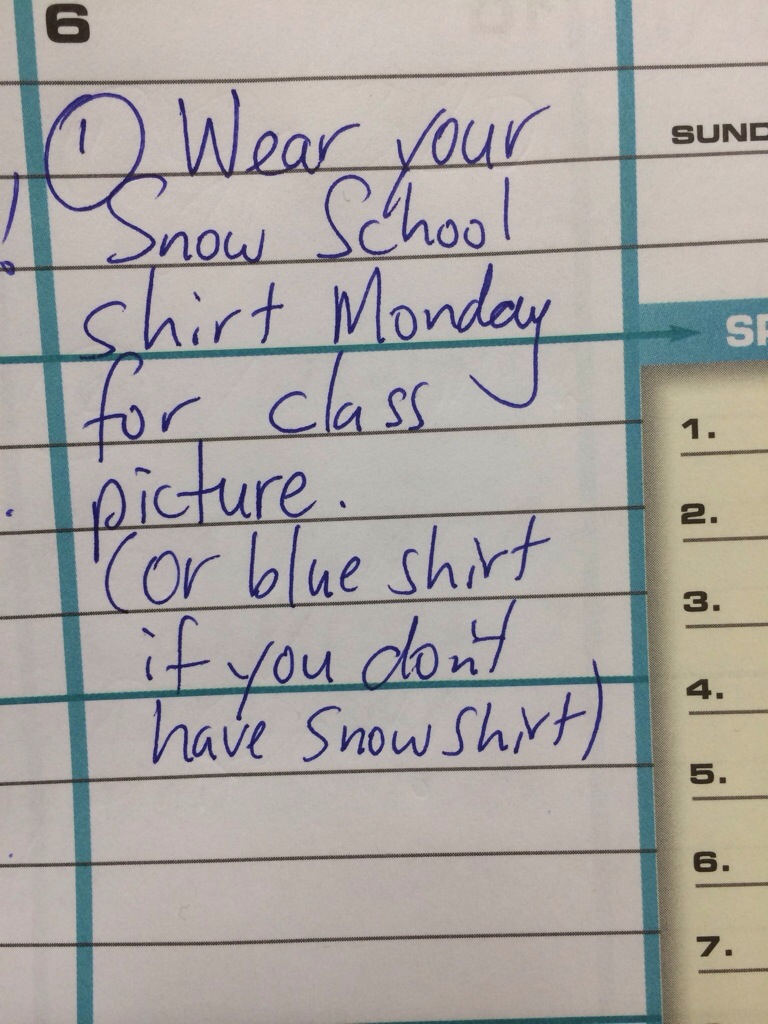 6
① Wear your
Snow School
shirt Monday
for class
picture.
(or blue shirt
if you don't
have Snow shirt)
!
SUND
SP
1.
2.
3.
4.
5.
6.
7.